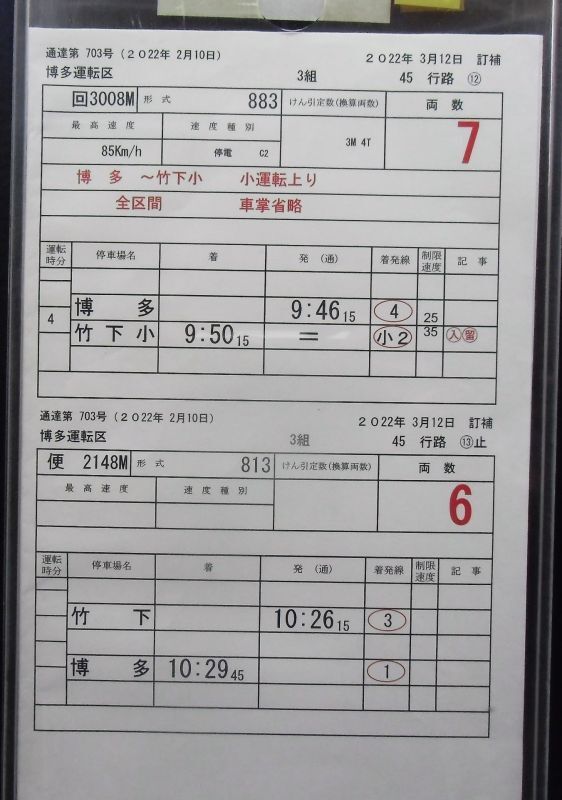 通達第 703号(２０22年 2月10日) ２０22年 3月12日 訂補
博多運転区 3組 45 行路 ⑫
回3008M 形 式 883 けん引定数(換算両数) 両 数
最 高 速 度 速 度 種 別 3M 4T 7
85Km/h 停電 C2
博 多 ～竹下小 小運転上り
全区間 車掌省略
運転時分 停車場名 着 発 (通) 着発線 制限速度 記 事
博 多 9:46 15 4 25
4 竹 下 小 9:50 15 ＝ 小２ 35 入 留
通達第 703号(２０22年 2月10日) ２０22年 3月12日 訂補
博多運転区 3組 45 行路 ⑬止
便 2148M 形 式 813 けん引定数(換算両数) 両 数
最 高 速 度 速 度 種 別 6
運転時分 停車場名 着 発 (通) 着発線 制限速度 記 事
竹 下 10:26 15 3
博 多 10:29 45 1